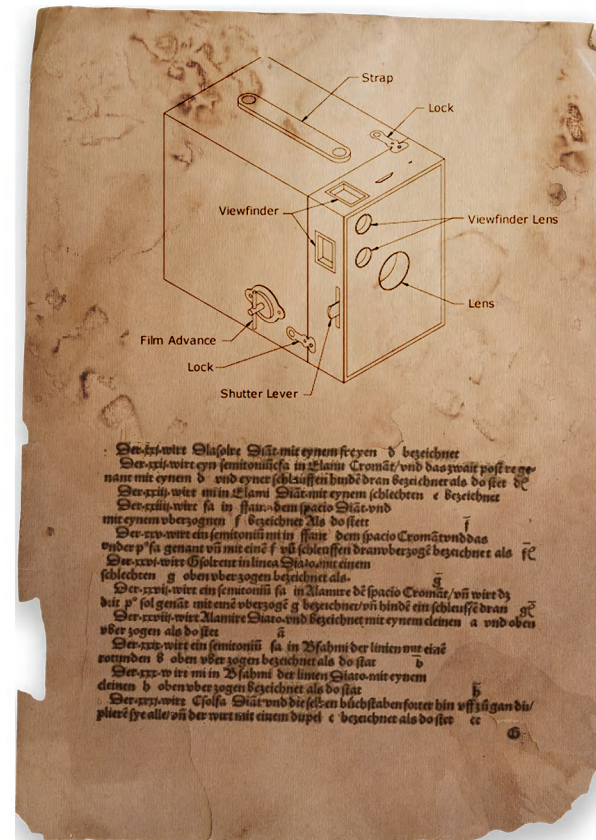 Strap
Lock
Viewfinder
Viewfinder Lens
Lens
Film Advance
Lock
Shutter Lever
Der·xxj·wirt Dlasolre Diāt·mit eynem freyen d bezeichnet
Der·xxij·wirt eyn semitoniū·fa in Elami Cromāt/vnd das zwait post re ge-
nant mit eynem d vnd eyner schlauffen hindē dran bezeichner als do stet
Der·xxiij·wirt mi in Elami Diāt·mit eynem schlechten e bezeichnet
Der·xxiiij·wirt fa in ffaut·dem spacio Diāt·vnd
mit eynem vberzognen f bezeichnet Als do stett f̄
Der·xxv·wirt ein semitoniū mi in ffaut dem spacio Cromāt vnd das
vnder fa genant vn̄ mit einē f vn̄ schleuffen dran vberzogē bezeichnet als
Der·xxvi·wirt Gsolreut in linea Diato·mit einem
schlechten g oben vber zogen bezeichnet als· ḡ
Der·xxvij·wirt ein semitoniū fa in Alamire dē spacio Cromāt/vn̄ wirt dz
sol genāt mit einē vberzogē g bezeichnet/vn̄ hindē ein schleuffē dran
Der·xxviij·wirt Alamire Diato·vnd bezeichnet mit eynem cleinen a vnd oben
vber zogen als do stet ā
Der·xxix·wirt ein semitoniū fa in Bfabmi der linien mit einē
rotunden b oben vber zogen bezeichnet als do stat b̄
Der·xxx·wirt mi in Bfabmi der linien Diato·mit eynem
cleinen h oben vber zogen bezeichnet als do stat h̄
Der·xxxj·wirt Csolfa Diāt·vnd die selben bůchstaben forter hin vff zů gan du/
plierē sye alle/vn̄ der wirt mit einem dupel c bezeichnet als do stet cc
G